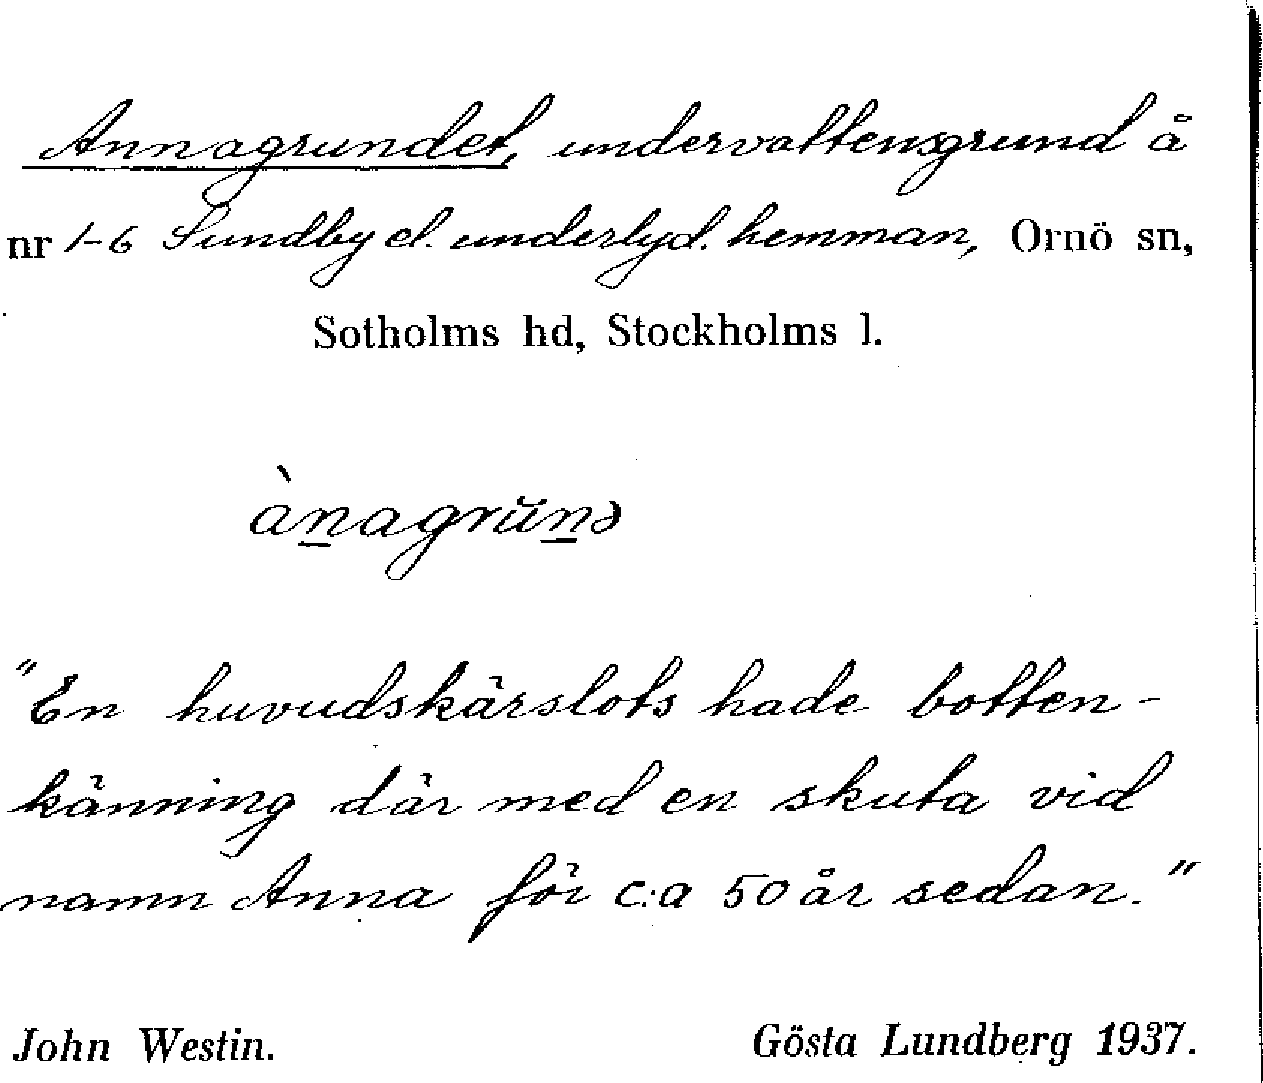 Annagrundet, undervattensgrund å
nr 1-6 Sundby el. underlyd. hemman, Ornö sn,
Sotholms hd, Stockholms l.
ànagru̇̆nə
"En huvudskärslots hade botten-
känning där med en skuta vid
namn Anna för c:a 50 år sedan."
John Westin. Gösta Lundberg 1937.